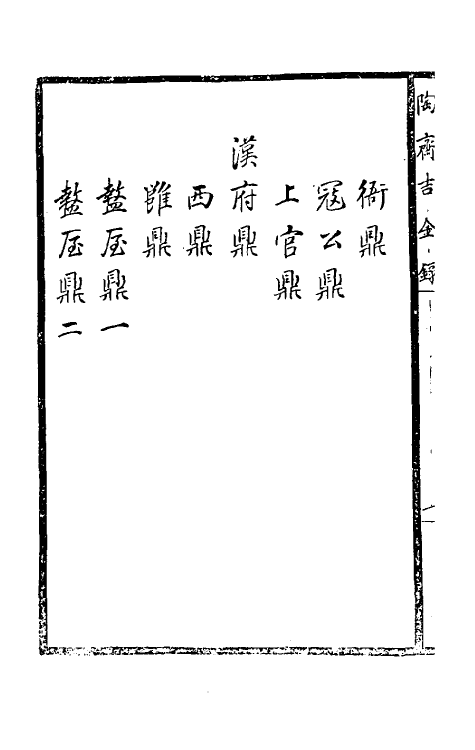 陶齋吉金錄
衙鼎
冠公鼎
上官鼎
漢府鼎
西鼎
雝鼎
盩厔鼎一
盩厔鼎二